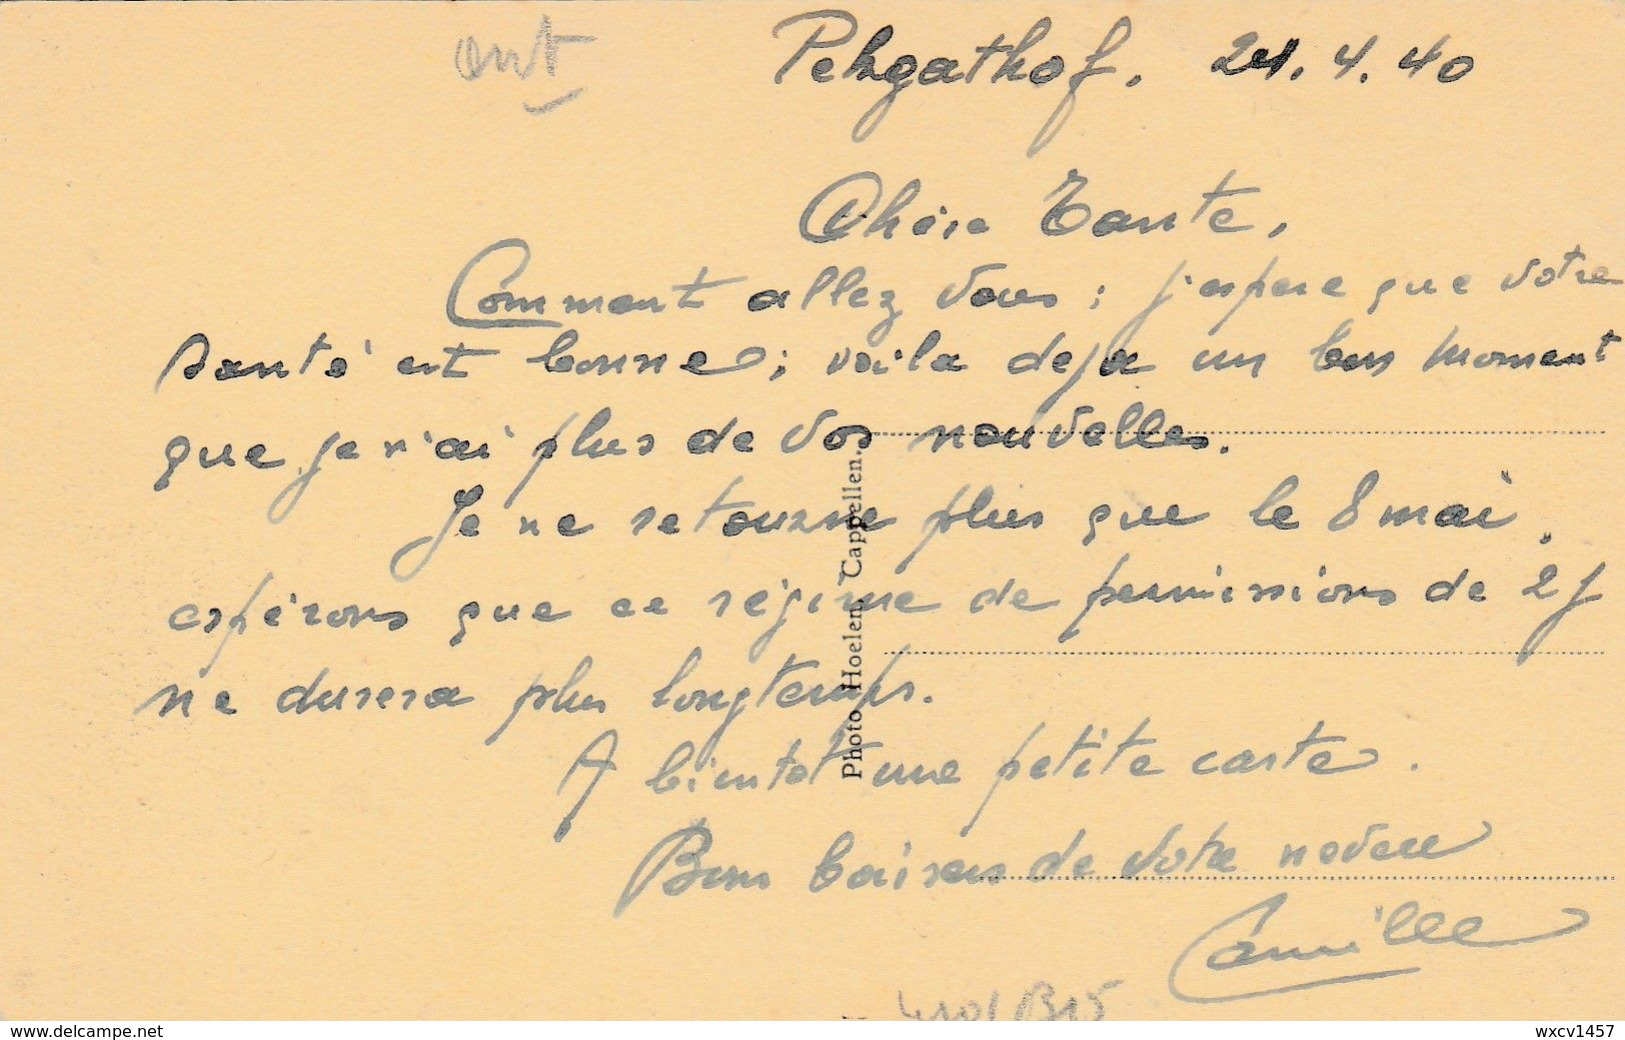 ant
Pelzgathof. 24. 4. 40
Chère Tante,
Comment allez vous ; j'espere que votre
santé est bonne ; voila deja un bon moment
que je n'ai plus de vos nouvelles.
Je ne retourne plus que le 8 mai.
espérons que ce régime de permissions de 2 J
ne durera plus longtemps.
A bientot une petite carte.
Bons baisers de votre neveu
Camille
Photo Hoelen, Cappellen.
www.delcampe.net
wxcv1457